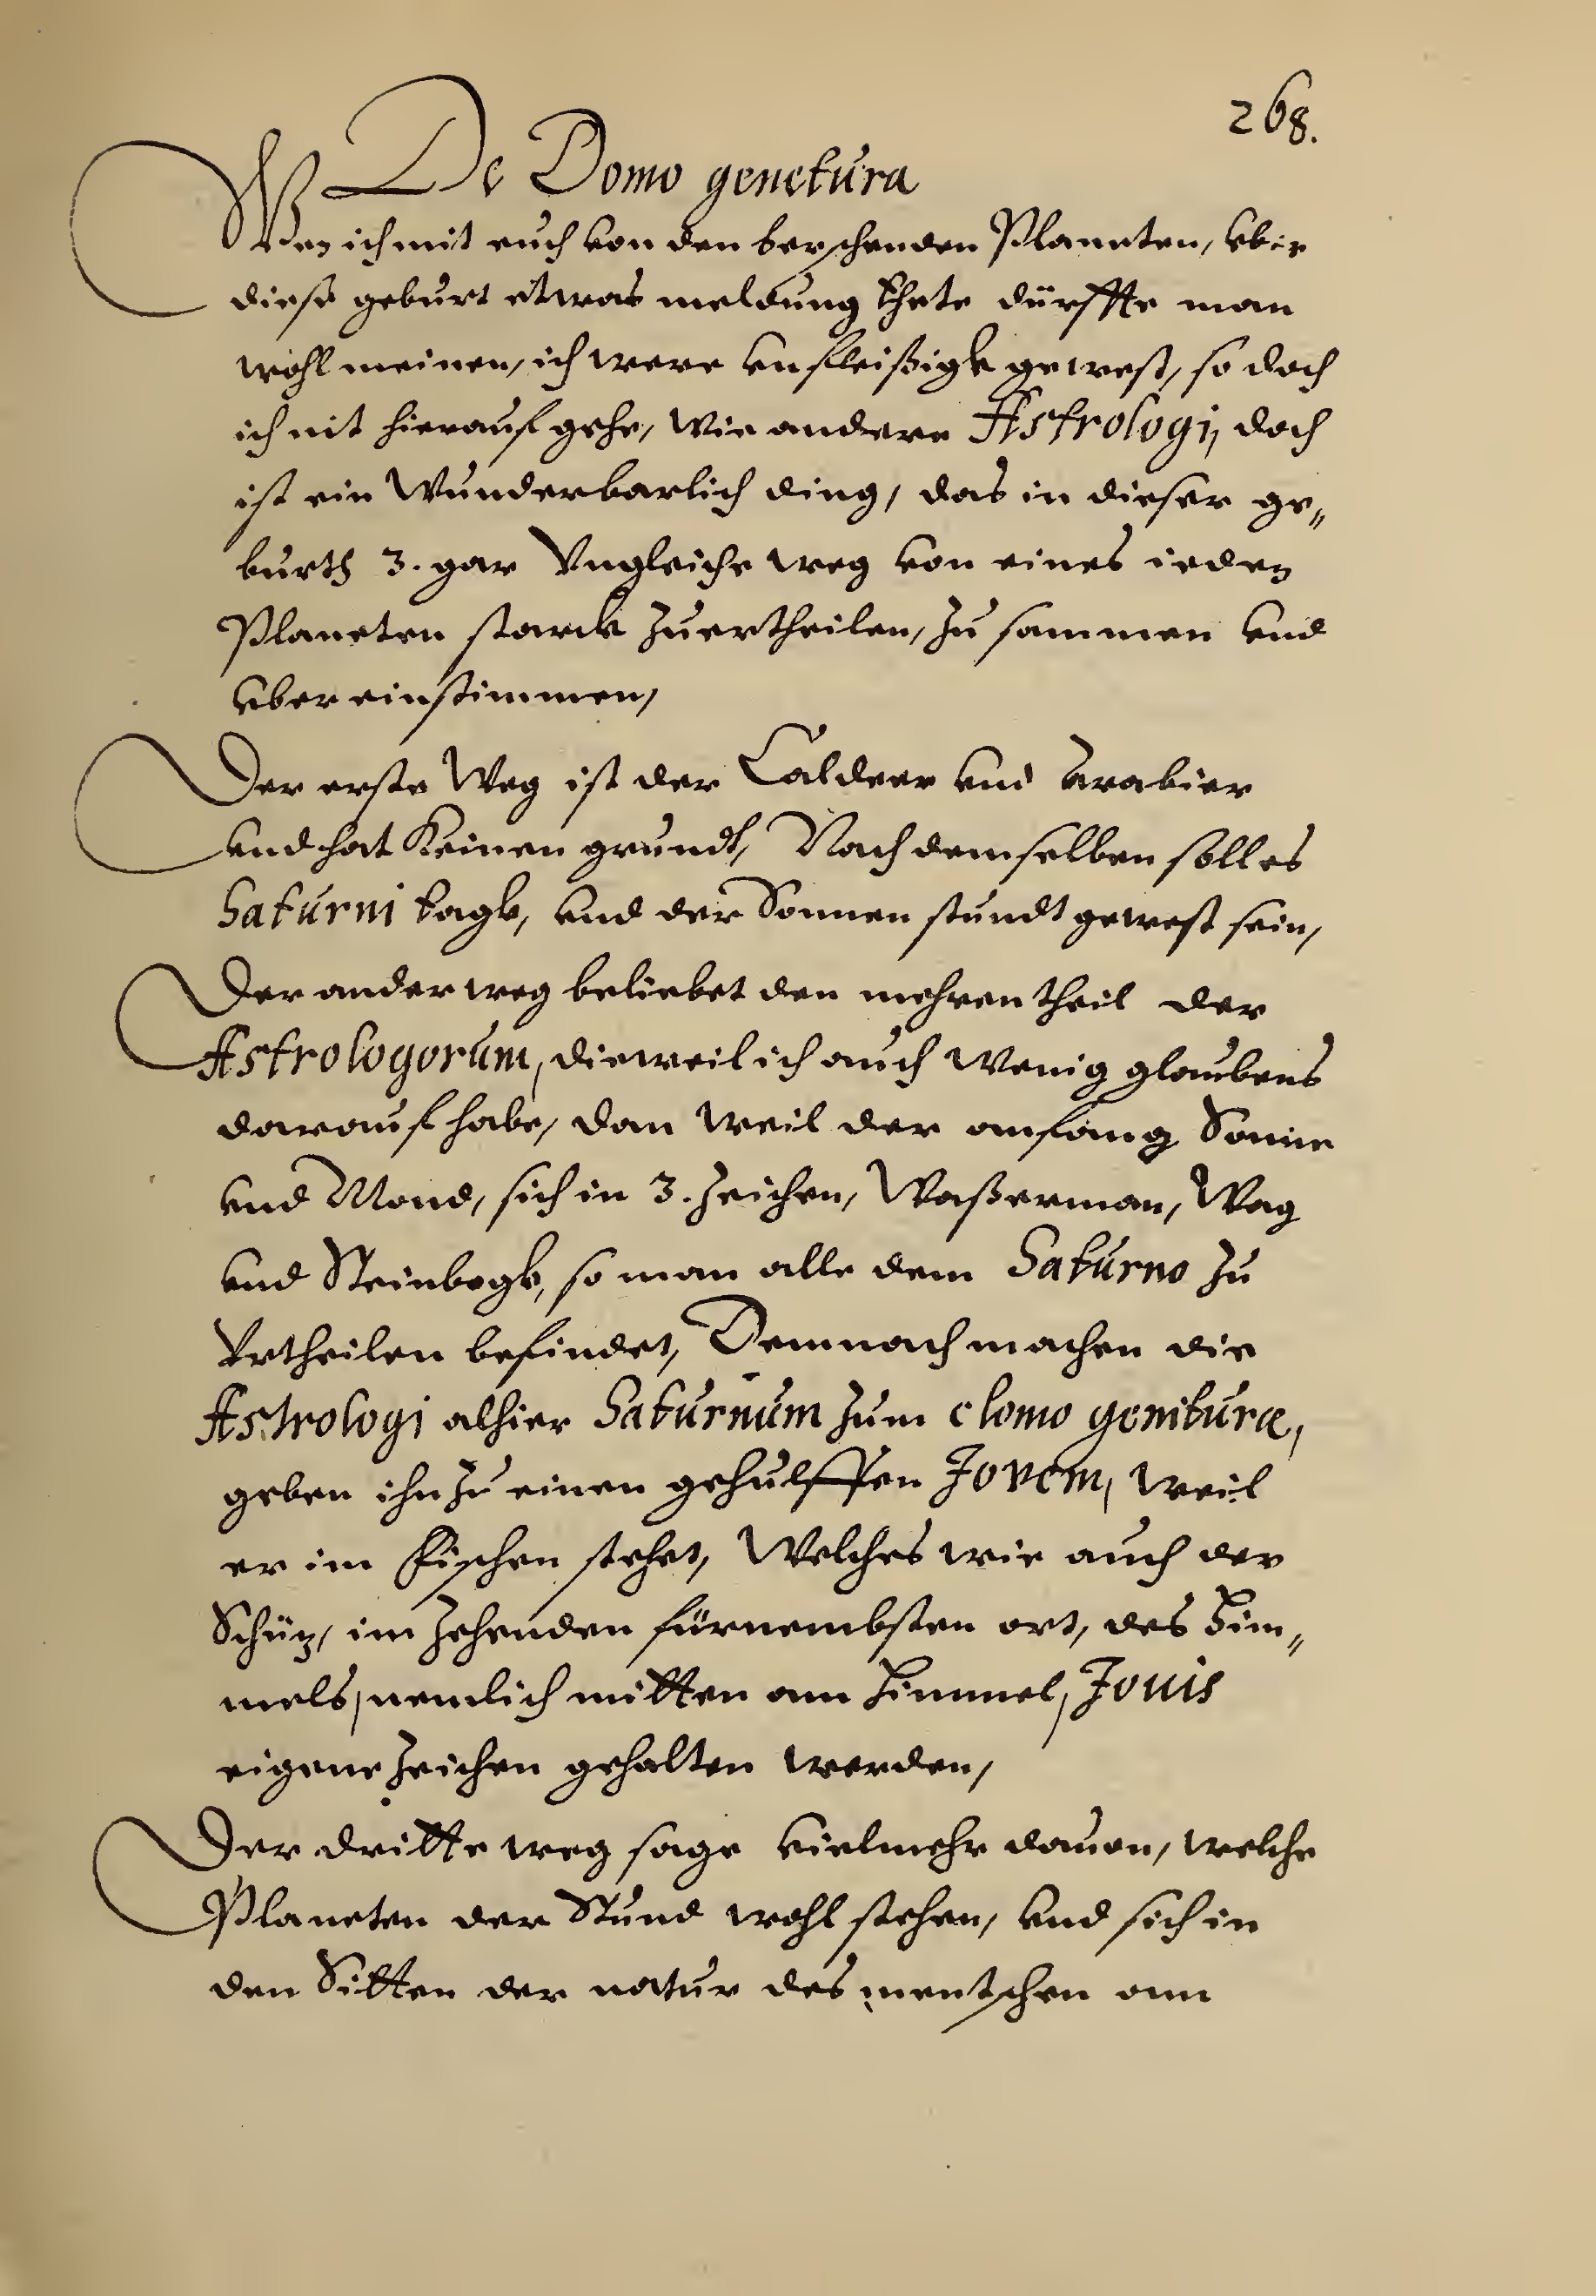 268.
De Domo genetura
Wen ich mit euch von den berschenden Planneten, vber
diese geburt etwas meldung thete dürffte man
wohl meinen, ich were unfleißigk gewest, so doch
ich nit hierauf gehe, wie andere Astrologi, doch
ist ein Wunderbarlich ding, das in dieser ge„
burth 3. gar Vngleiche weg von eines ieden
Planeten starck zuertheilen, zu sammen vnd
vber einstimmen,
Der erste Weg ist der Caldeer vnd Arabier
vnd hat Keinen grundt, Nach demselben soll es
Saturni tagk, vnd der Sonnen stundt gewest sein,
Der ander weg beliebet den mehren theil der
Astrologorum, dieweil ich auch Wenig glaubens
darauf habe, dan weil der anfang Sonne
vnd Mond, sich in 3. Zeichen, Waßerman, Wag
vnd Steinbogk, so man alle dem Saturno zu
Vrtheilen befindet, Demnach machen die
Astrologi alhier Saturnum zum domo genituræ,
geben ihn zu einen gehulffen Jovem, weil
er im Fischen stehet, Welches wie auch der
Schüz, im zehenden fürnembsten ort, des Him„
mels, nemlich mitten am Himmel, Jouis
eigene zeichen gehalten werden,
Der dritte weg sage vielmehr dauon, welche
Planeten der Stund wohl stehen, vnd sich in
den Sitten der natur des mentschen ann